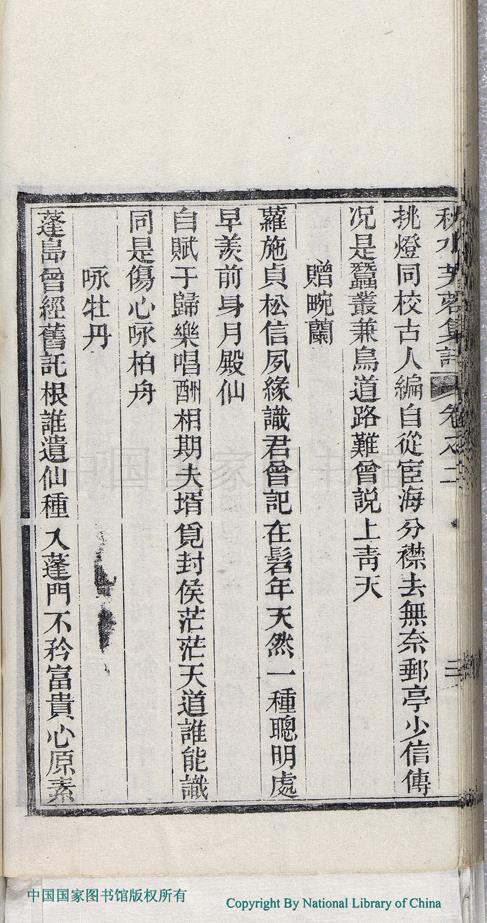 秋水芙蓉集
卷之二
挑燈同校古人編自從宦海分襟去無奈郵亭少信傳
况是蠶叢兼鳥道路難曾説上靑天
贈畹蘭
蘿施貞松信夙緣識君曾記在髫年天然一種聰明處
早羨前身月殿仙
自賦于歸樂唱酬相期夫壻覓封侯茫茫天道誰能識
同是傷心咏柏舟
咏牡丹
蓬島曾經舊託根誰遺仙種入蓬門不矜富貴心原素
中国国家图书馆版权所有
Copyright By National Library of China